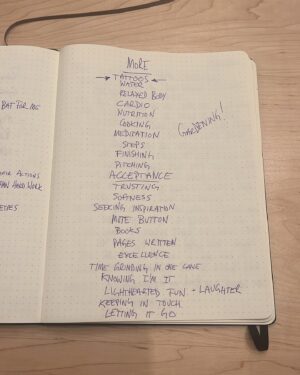 MORE
→ TATTOOS ←
WATER
RELAXED BODY
CARDIO
NUTRITION
COOKING
MEDITATION
STEPS
FINISHING
PITCHING
ACCEPTANCE
TRUSTING
SOFTNESS
SEEKING INSPIRATION
MUTE BUTTON
BOOKS
PAGES WRITTEN
EXCELLENCE
TIME GRINDING IN ONE LANE
KNOWING I'M IT
LIGHTHEARTED FUN - LAUGHTER
KEEPING IN TOUCH
LETTING IT GO
GARDENING!
BAT FOR ME
ACTIONS
HARD WORK